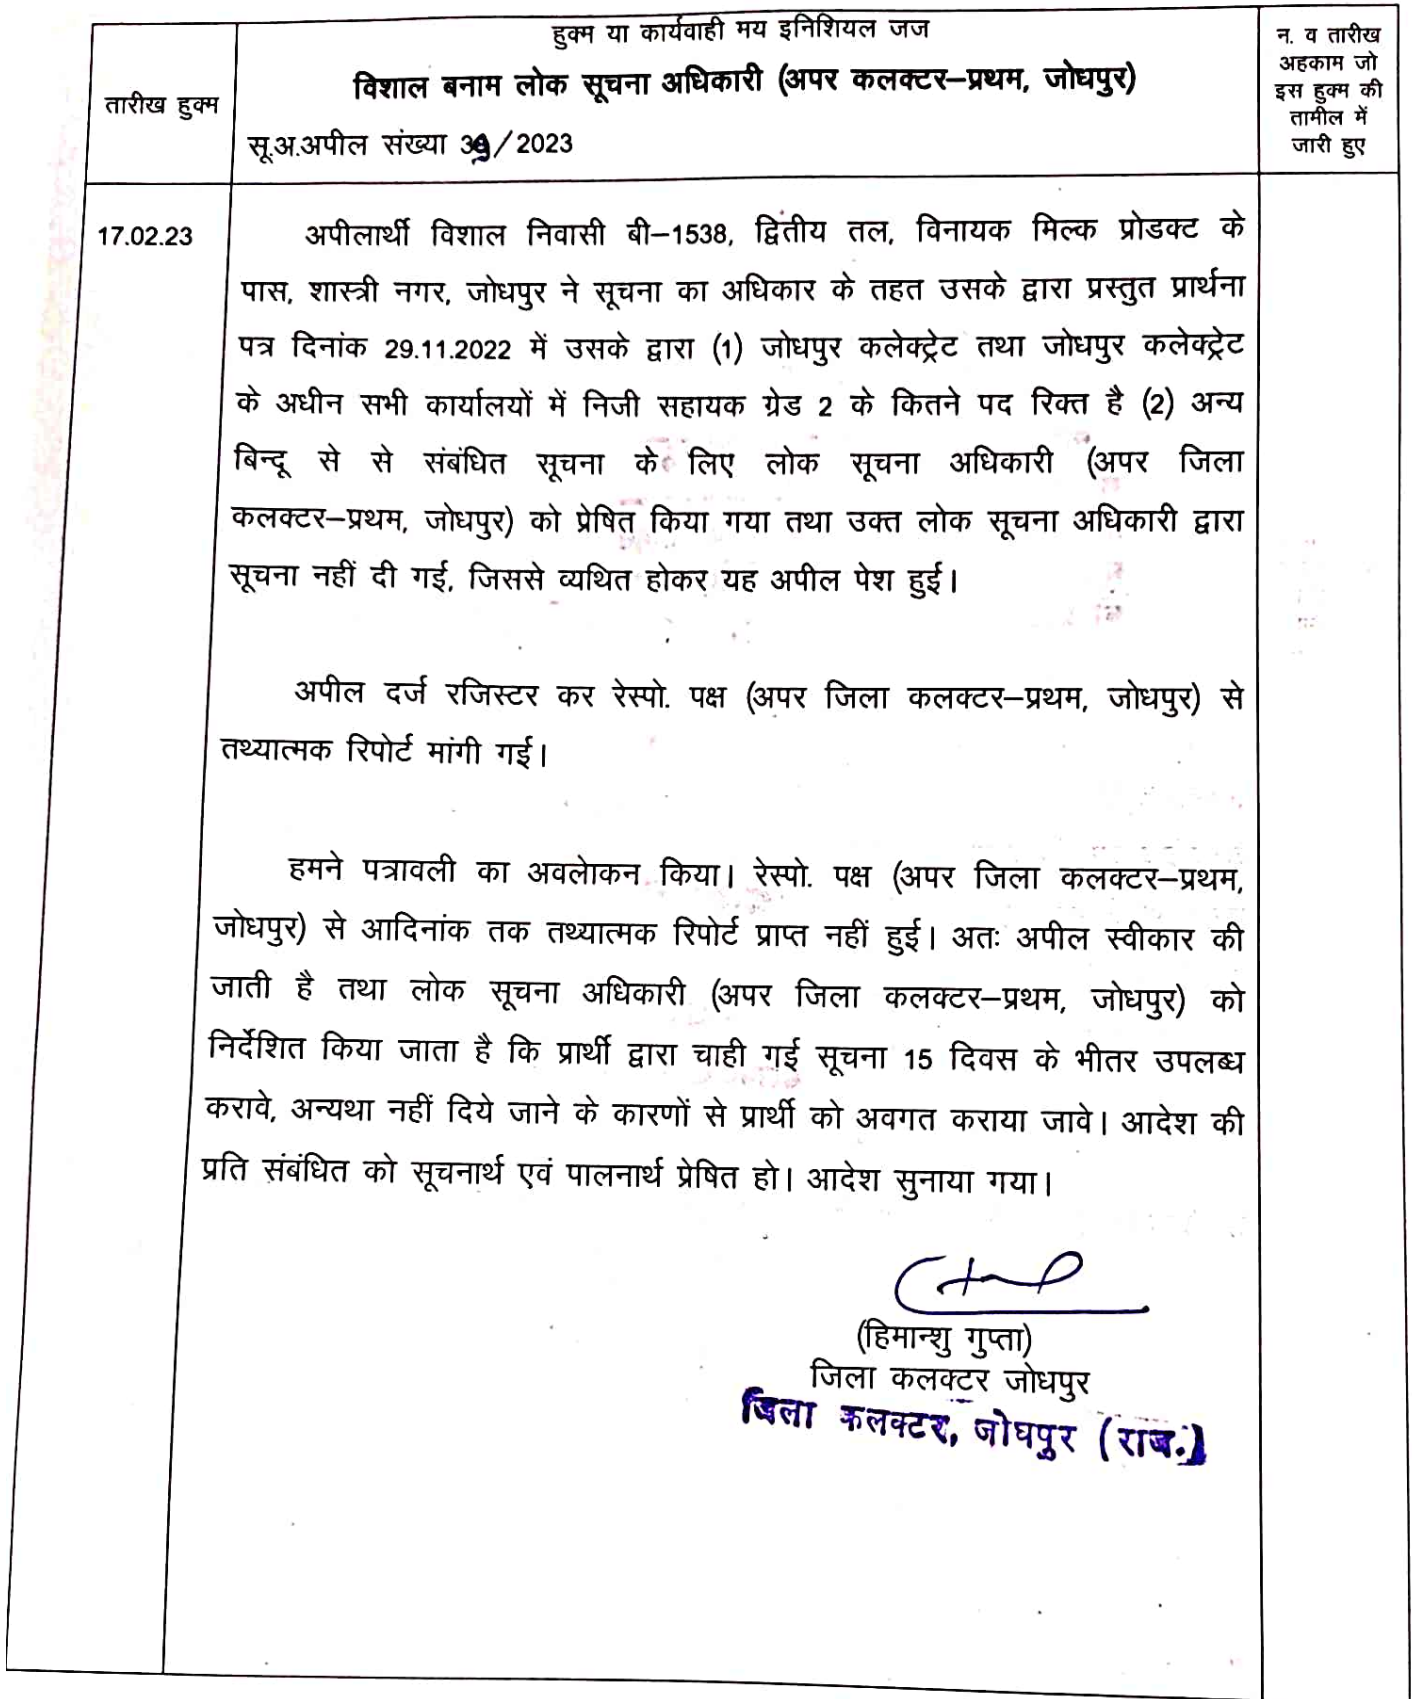 हुक्म या कार्यवाही मय इनिशियल जज
विशाल बनाम लोक सूचना अधिकारी (अपर कलक्टर–प्रथम, जोधपुर)
सू.अ.अपील संख्या 39/2023
तारीख हुक्म
न. व तारीख
अहकाम जो
इस हुक्म की
तामील में
जारी हुए
17.02.23
अपीलार्थी विशाल निवासी बी–1538, द्वितीय तल, विनायक मिल्क प्रोडक्ट के
पास, शास्त्री नगर, जोधपुर ने सूचना का अधिकार के तहत उसके द्वारा प्रस्तुत प्रार्थना
पत्र दिनांक 29.11.2022 में उसके द्वारा (1) जोधपुर कलेक्ट्रेट तथा जोधपुर कलेक्ट्रेट
के अधीन सभी कार्यालयों में निजी सहायक ग्रेड 2 के कितने पद रिक्त है (2) अन्य
बिन्दू से से संबंधित सूचना के लिए लोक सूचना अधिकारी (अपर जिला
कलक्टर–प्रथम, जोधपुर) को प्रेषित किया गया तथा उक्त लोक सूचना अधिकारी द्वारा
सूचना नहीं दी गई, जिससे व्यथित होकर यह अपील पेश हुई।
अपील दर्ज रजिस्टर कर रेस्पो. पक्ष (अपर जिला कलक्टर–प्रथम, जोधपुर) से
तथ्यात्मक रिपोर्ट मांगी गई।
हमने पत्रावली का अवलेाकन किया। रेस्पो. पक्ष (अपर जिला कलक्टर–प्रथम,
जोधपुर) से आदिनांक तक तथ्यात्मक रिपोर्ट प्राप्त नहीं हुई। अतः अपील स्वीकार की
जाती है तथा लोक सूचना अधिकारी (अपर जिला कलक्टर–प्रथम, जोधपुर) को
निर्देशित किया जाता है कि प्रार्थी द्वारा चाही गई सूचना 15 दिवस के भीतर उपलब्ध
करावे, अन्यथा नहीं दिये जाने के कारणों से प्रार्थी को अवगत कराया जावे। आदेश की
प्रति संबंधित को सूचनार्थ एवं पालनार्थ प्रेषित हो। आदेश सुनाया गया।
(हिमान्शु गुप्ता)
जिला कलक्टर जोधपुर
जिला कलक्टर, जोधपुर (राज.)